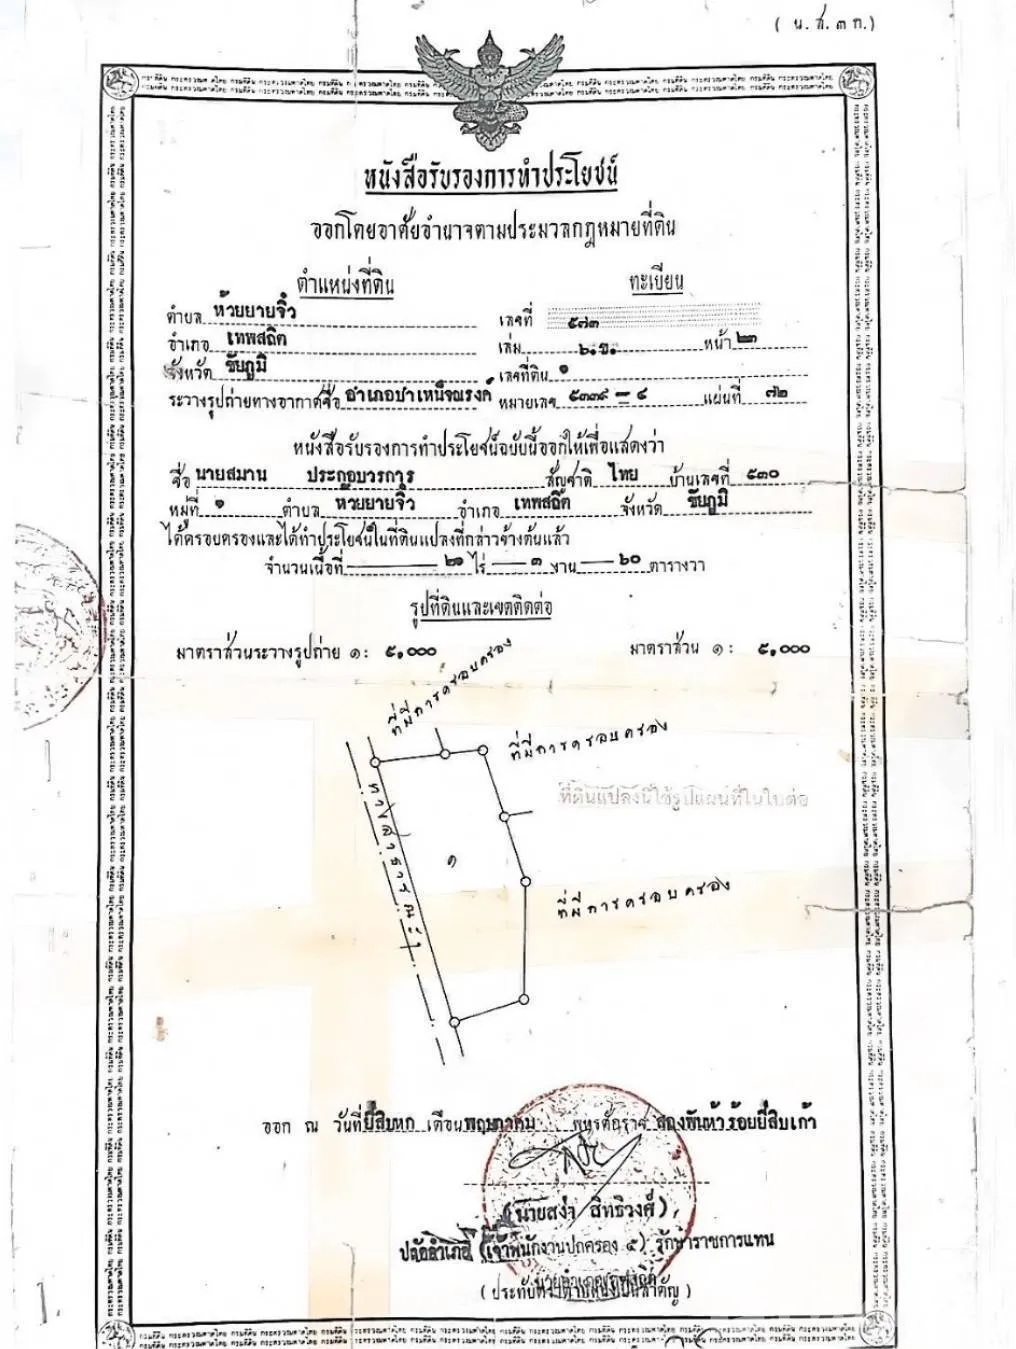 ( น.ส.๓ ก.)
หนังสือรับรองการทำประโยชน์
ออกโดยอาศัยอำนาจตามประมวลกฎหมายที่ดิน
ตำแหน่งที่ดิน ทะเบียน
ตำบล ห้วยยายจิ๋ว เลขที่ ๕๗๓
อำเภอ เทพสถิต เล่ม ๖.ข. หน้า ๒๓
จังหวัด ชัยภูมิ เลขที่ดิน ๑
ระวางรูปถ่ายทางอากาศชื่อ อำเภอบำเหน็จณรงค์ หมายเลข ๕๓๓๙ – ๔ แผ่นที่ ๗๒
หนังสือรับรองการทำประโยชน์ฉบับนี้ออกให้เพื่อแสดงว่า
ชื่อ นายสมาน ประกอบวรการ สัญชาติ ไทย บ้านเลขที่ ๕๓๐
หมู่ที่ ๑ ตำบล ห้วยยายจิ๋ว อำเภอ เทพสถิต จังหวัด ชัยภูมิ
ได้ครอบครองและได้ทำประโยชน์ในที่ดินแปลงที่กล่าวข้างต้นแล้ว
จำนวนเนื้อที่ ๒๑ ไร่ ๓ งาน ๖๐ ตารางวา
รูปที่ดินและเขตติดต่อ
มาตราส่วนระวางรูปถ่าย ๑: ๕,๐๐๐ มาตราส่วน ๑: ๕,๐๐๐
ที่มีการครอบครอง
ที่มีการครอบครอง
ที่ดินแปลงนี้ใช้รูปแผนที่ในใบต่อ
ทางสาธารณะฯ
๑
ที่มีการครอบครอง
ออก ณ วันที่ ยี่สิบหก เดือน พฤษภาคม พุทธศักราช สองพันห้าร้อยยี่สิบเก้า
(นายสง่า สิทธิวงศ์)
ปลัดอำเภอ (เจ้าพนักงานปกครอง ๕) รักษาราชการแทน
นายอำเภอเทพสถิต
(ประทับตราตำแหน่งเป็นสำคัญ)